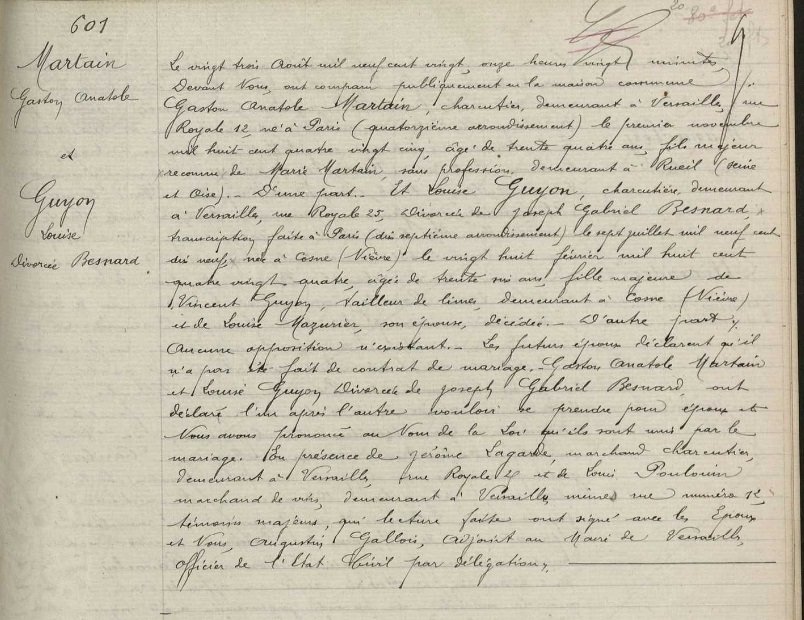 601
Martain
Gaston Anatole
et
Guyon
Louise
Divorcée Besnard
Le vingt trois Août mil neuf cent vingt, onze heures vingt minutes,
Devant Nous, ont comparu publiquement en la maison commune
Gaston Anatole Martain, charcutier, demeurant à Versailles, rue
Royale 12, né à Paris (quatorzième arrondissement) le premier novembre
mil huit cent quatre vingt cinq, âgé de trente quatre ans, fils majeur
reconnu de Marie Martain, sans profession, demeurant à Rueil (Seine
et Oise). _ D'une part. _ Et Louise Guyon, charcutière, demeurant
à Versailles, rue Royale 25, Divorcée de Joseph Gabriel Besnard,
transcription faite à Paris (dix septième arrondissement) le sept juillet mil neuf cent
dix neuf, née à Cosne (Nièvre) le vingt huit février mil huit cent
quatre vingt quatre, âgée de trente six ans, fille majeure de
Vincent Guyon, tailleur de limes, demeurant à Cosne (Nièvre)
et de Louise Mazurier, son épouse, décédée. _ D'autre part
Aucune opposition n'existant. _ Les futurs époux déclarent qu'il
n'a pas été fait de contrat de mariage. _ Gaston Anatole Martain
et Louise Guyon Divorcée de Joseph Gabriel Besnard, ont
déclaré l'un après l'autre vouloir se prendre pour époux et
Nous avons prononcé au Nom de la Loi qu'ils sont unis par le
mariage. En présence de Jérôme Lagarde, marchand charcutier,
demeurant à Versailles, rue Royale et de Louis Poulouin
marchand de vins, demeurant à Versailles même rue numéro 12,
témoins majeurs, qui lecture faite ont signé avec les Epoux
et Nous, Augustin Gallois, Adjoint au Maire de Versailles,
Officier de l'Etat Civil par délégation,